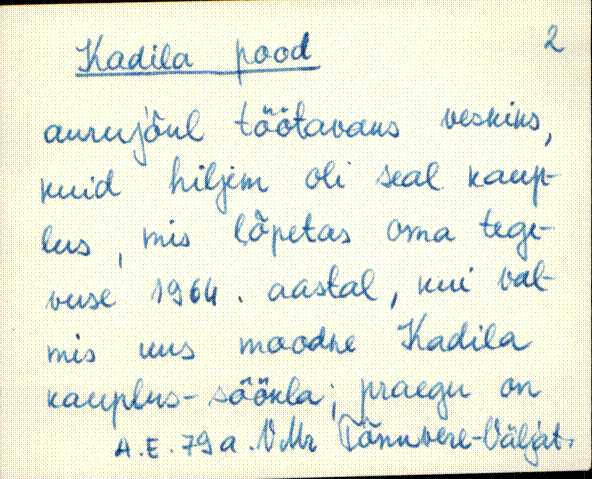 Kadila pood 2
aurujõul töötavaks veskiks,
kuid hiljem oli seal kaup-
lus, mis lõpetas oma tege-
vuse 1964. aastal, kui val-
mis uus moodne Kadila
kauplus-söökla; praegu on
A.E. 79 a. VMr Tõnuvere-Väljat.